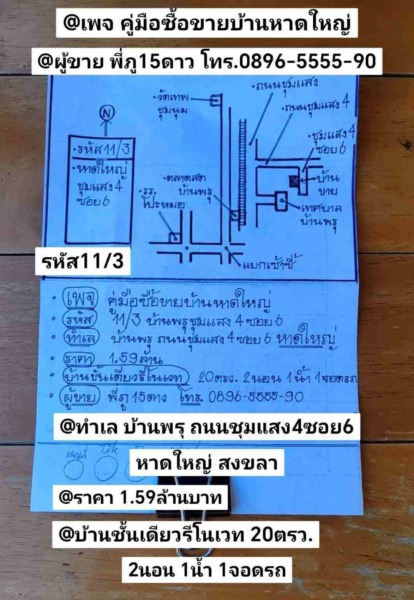 @เพจ คู่มือซื้อขายบ้านหาดใหญ่
@ผู้ขาย พี่ภู15ดาว โทร.0896-5555-90
N
• รหัส 11/3
• หาดใหญ่
ชุมแสง 4
ซอย 6
• วัดเทพ
ชุมนุม
• ถนนชุมแสง
• ถนนชุมแสง 4
• ชุมแสง 4
ซอย 6
• บ้าน
ขาย
• ตลาดสด
บ้านพรุ
• รร.
โป๊ะหมอ
• เทศบาล
บ้านพรุ
• แยกเซ้าซี้
รหัส11/3
• เพจ คู่มือซื้อขายบ้านหาดใหญ่
• รหัส 11/3 บ้านพรุชุมแสง 4 ซอย 6
• ทำเล บ้านพรุ ถนนชุมแสง 4 ซอย 6 หาดใหญ่
• ราคา 1.59 ล้าน
• บ้านชั้นเดียวรีโนเวท 20ตรว. 2นอน 1น้ำ 1จอดรถ
• ผู้ขาย พี่ภู 15ดาว โทร. 0896-5555-90
@ทำเล บ้านพรุ ถนนชุมแสง4ซอย6
หาดใหญ่ สงขลา
@ราคา 1.59ล้านบาท
@บ้านชั้นเดียวรีโนเวท 20ตรว.
2นอน 1น้ำ 1จอดรถ